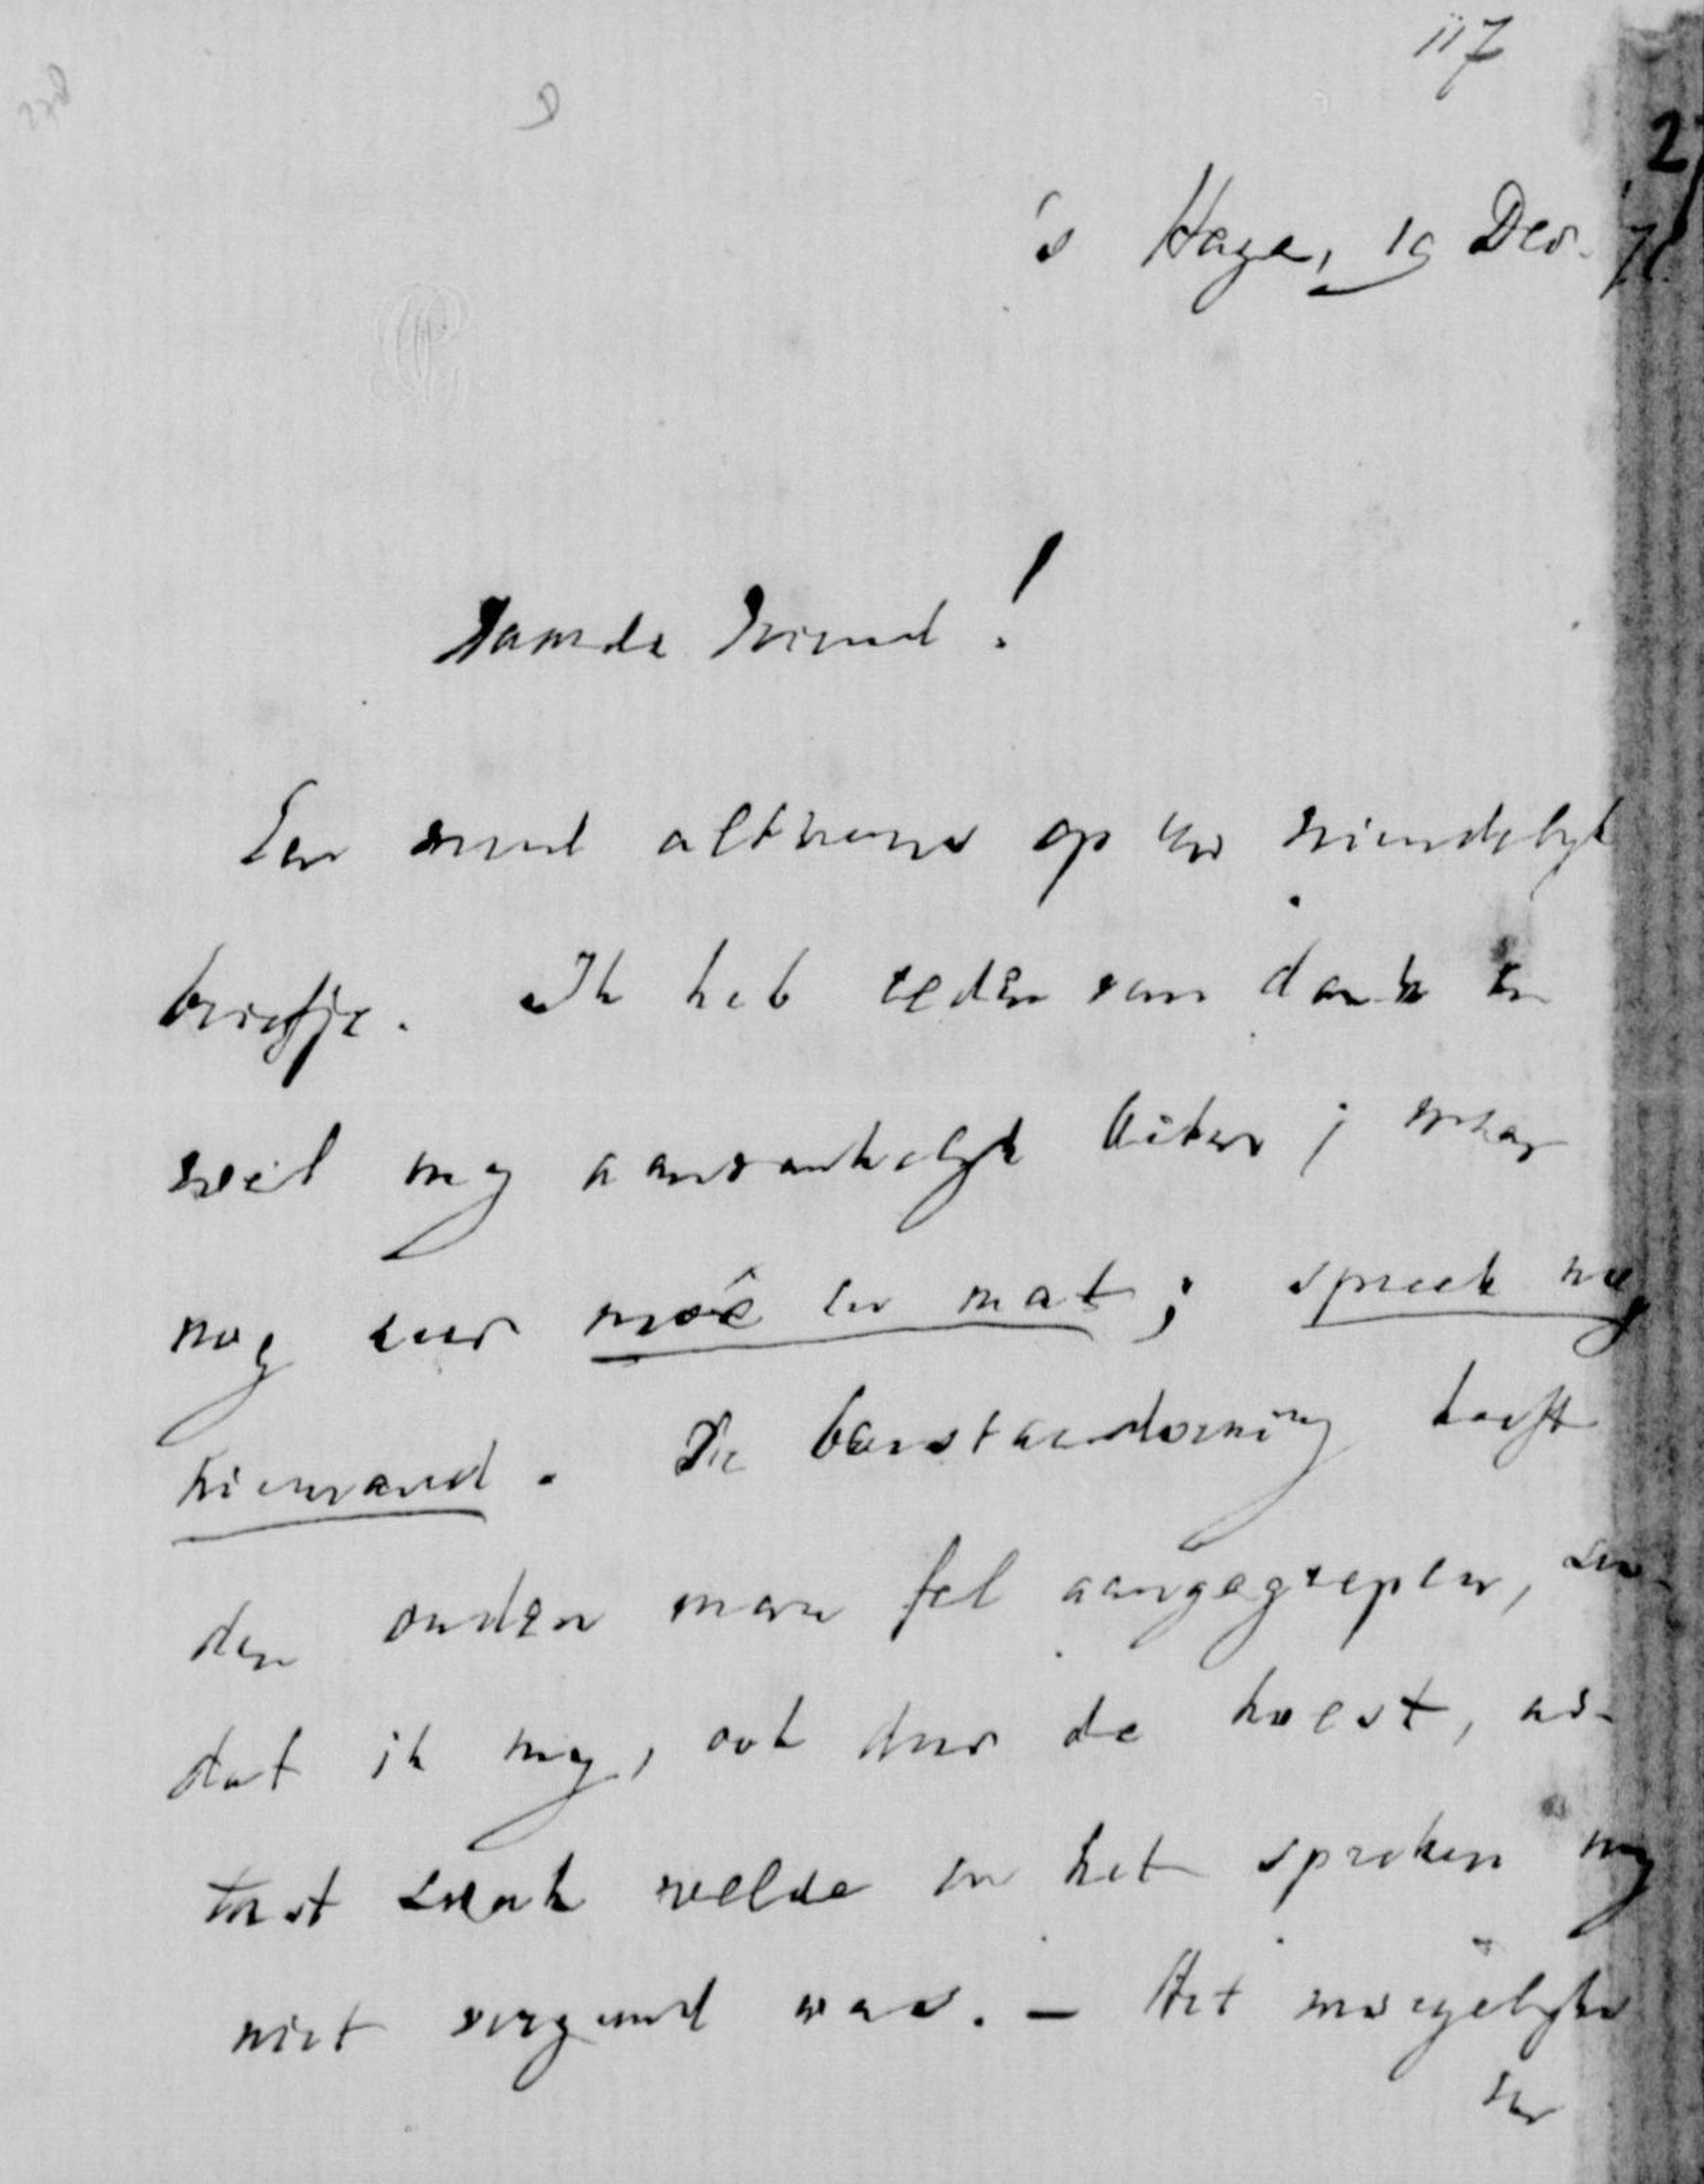 117
2
's Hage, 19 Dec.
Waarde Vriend!
Een word althans op uw vriendelijk
briefje. Ik heb reden van dank en
voel mij aanvankelijk beter; maar
nog zeer moê en mat; spreek nog
niemand. De benstaandoening heeft
den ouden man fel aangegrepen, zoo-
dat ik mij, ook door de hoest, uit-
zwak voelde en het spreken mij
niet vergund was. — Het mogelijke